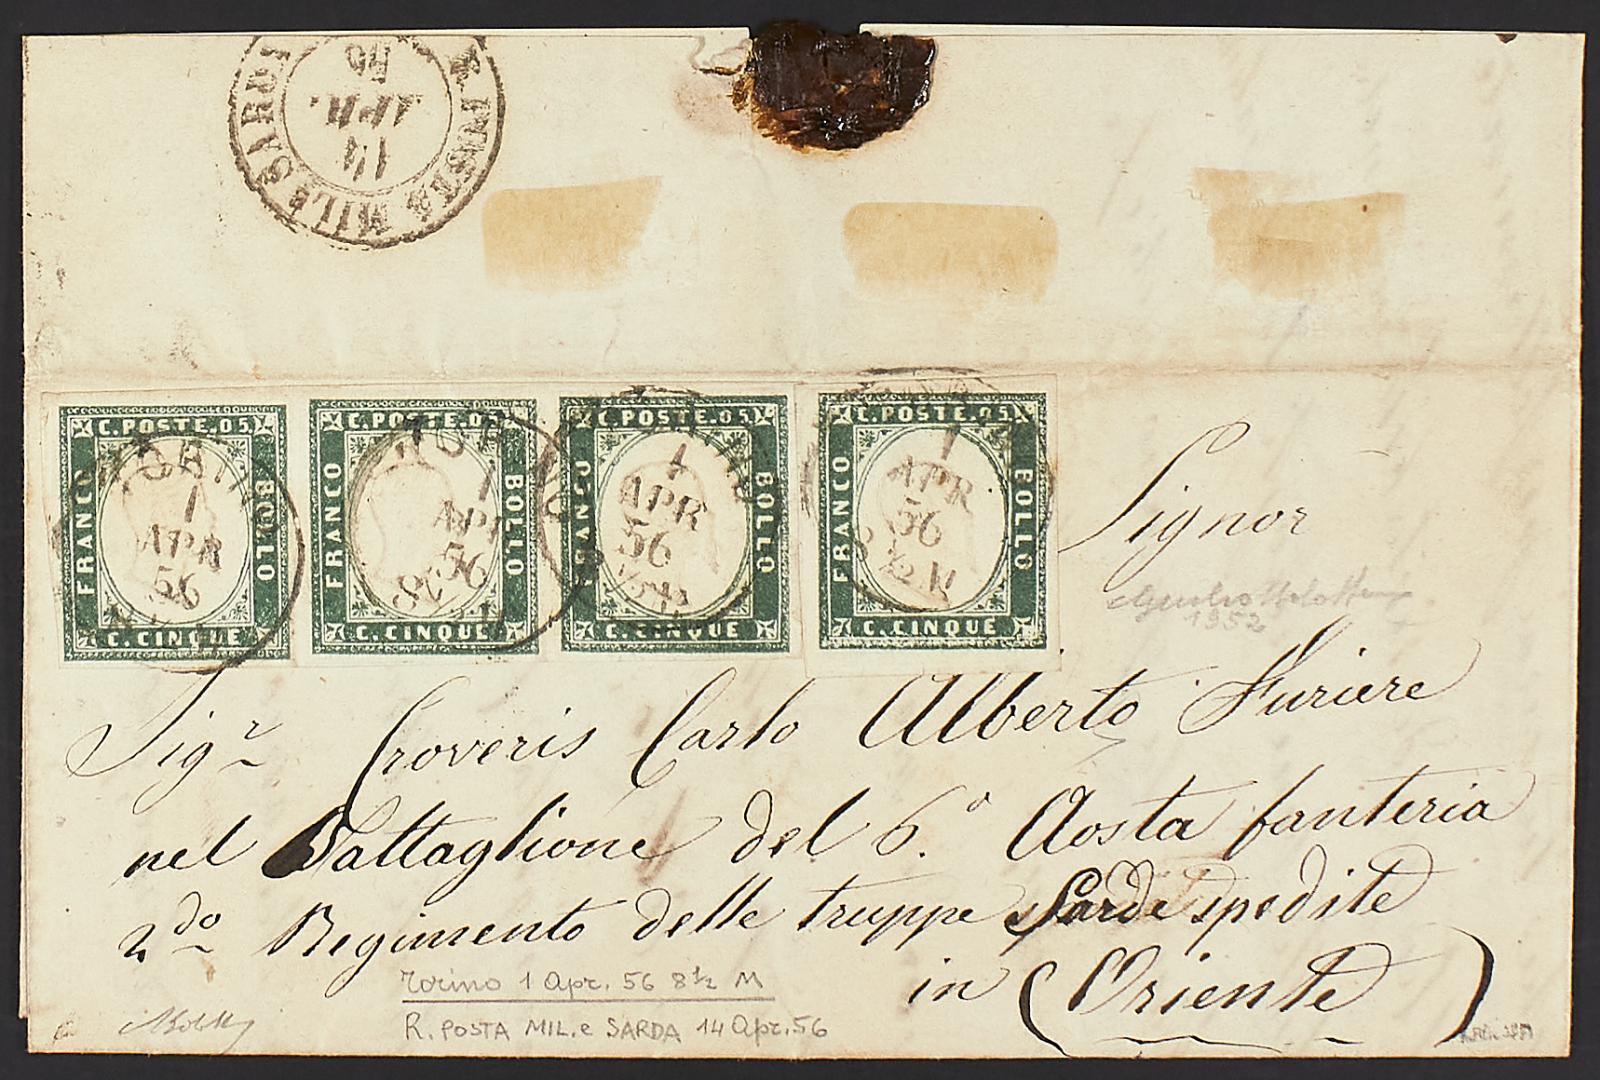 R. POSTA MIL.E SARDA
14
APR.
56
C. POSTE. 05
FRANCO
BOLLO
C. CINQUE
TORINO
1
APR
56
C. POSTE. 05
FRANCO
BOLLO
C. CINQUE
TORINO
1
APR
56
8½ M
C. POSTE. 05
FRANCO
BOLLO
C. CINQUE
TORINO
1
APR
56
C. POSTE. 05
FRANCO
BOLLO
C. CINQUE
1
APR
56
8½ M
Signor
1952
Sig.r Croveris Carlo Alberto Furiere
nel Battaglione del 6.° Aosta fanteria
2do Regimento delle truppe Sarde spedite
in (Oriente)
Torino 1 Apr. 56 8½ M
R. POSTA MIL.e SARDA 14 Apr. 56